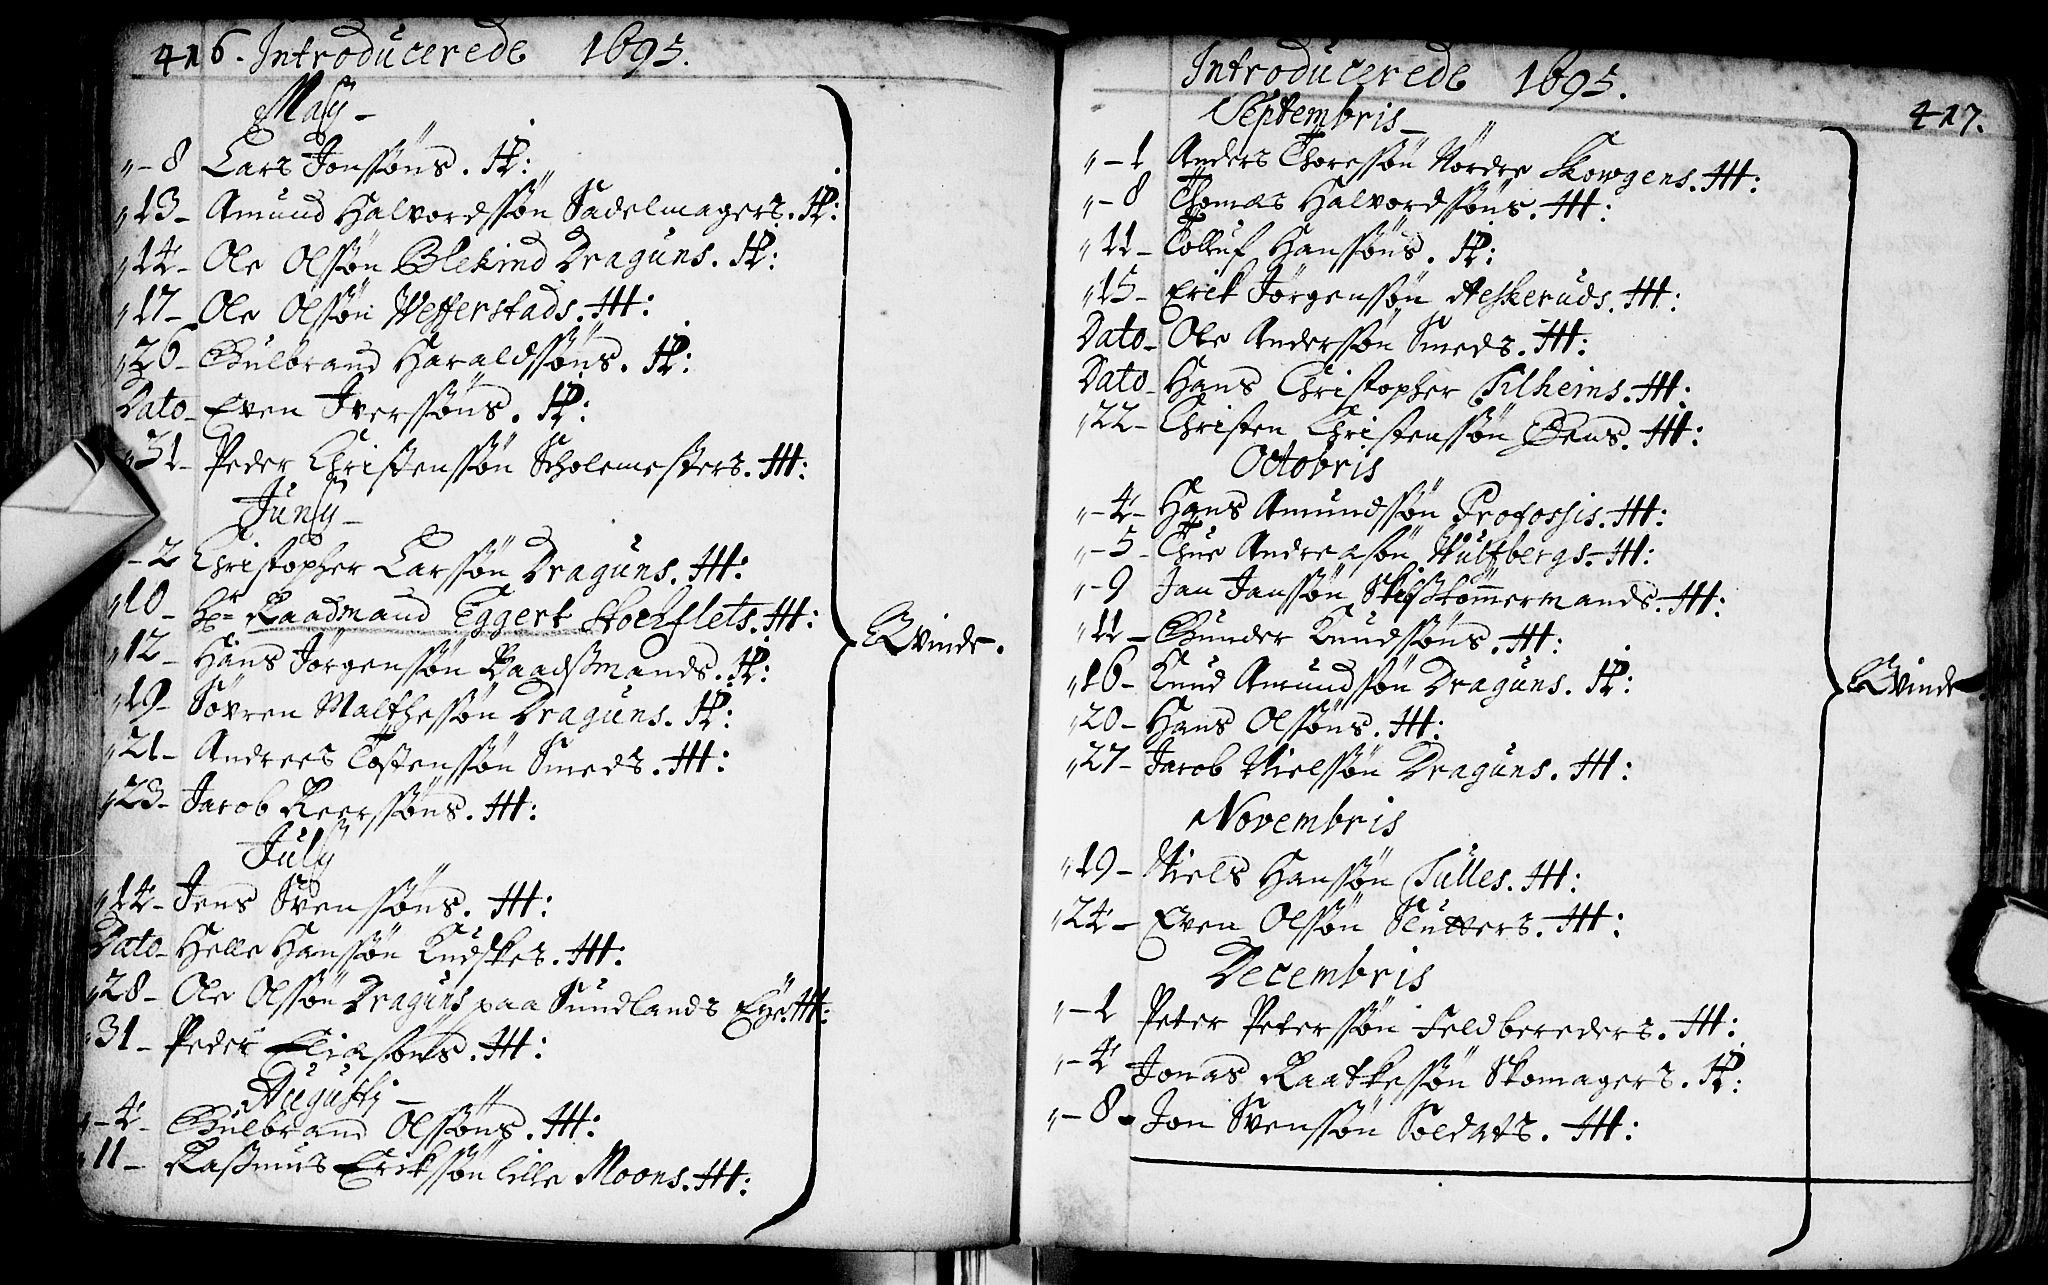 416. Introducerede 1695.
Maij
" - 8 Lars Jonssøns. H:
" 13 - Amund Halvordssøn Sadelmagers. H:
" 14 - Ole Olssøn Blekind Draguns. H:
" 17 - Ole Olssøn Wefferstads. H:
" 26 - Gulbrand Haraldssøns. H:
Dato - Even Iverssøns. H:
" 31 - Peder Christenssøn Scholemesters. H:
Junij
- 2 Christopher Larssøn Draguns. H:
" 10 - Hr Raadmand Eggert Stockflets. H:
" 12 - Hans Jørgenssøn Raadßmands. H:
" 19 - Søvren Malthessøn Draguns. H:
" 21 - Andrees Tostenssøn Smeds. H:
" 23 - Jacob Reerssøns. H:
July
" 14 - Jens Svenssøns. H:
Dato - Helle Hanssøn Kudskes. H:
" 28 - Ole Olssøn Draguns paa Sundlands Eye. H:
" 31 - Peder Eliasøns. H:
Augusti
" - 4 - Gulbrand Olssøns. H:
" 11 - Raßmus Erikssøn lille Moons. H:
Qvinde.
Introducerede 1695.
417.
Septembris
" - 1 Anders Thoressøn Nordre Skowgens. H:
" - 8 Thomas Halvordssøns. H:
" 11 - Tolluf Hanssøns. H:
" 15 - Erik Jørgenssøn Aeskeruds. H:
Dato - Ole Anderssøn Smeds. H:
Dato - Hans Christopher Silheims. H:
" 22 - Christen Christenssøn Dens. H:
Octobris
" - 4 - Hans Amundssøn Profossis. H:
" - 5 - Thue Andreasøn Wulfbergs. H:
" - 9 Jan Janssøn Skibstømmermands. H:
" 11 - Gunder Knudssøns. H:
" 16 - Knud Amundsøn Draguns. H:
" 20 - Hans Olssøns. H:
" 27 - Jacob Nielssøn Draguns. H:
Novembris
" 19 - Niels Hanssøn Tulles. H:
" 24 - Even Olssøn Slutters. H:
Decembris
" - 1 Peter Peterssøn Feldbereders. H:
" - 4 Jonas Raatkessøn Skomagers. H:
" - 8 - Jon Svenssøn Soldats. H:
Qvinde